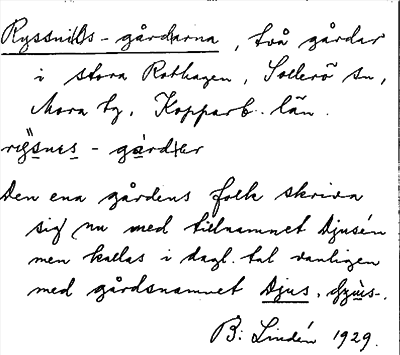 Ryssnils-gårdarna, två gårdar
i stora Rothagen, Sollerö sn,
Mora tg, Kopparb. län.
Den ena gårdens folk skriva
sig nu med tillnamnet Djusén
men kallas i dagl. tal vanligen
med gårdsnamnet Djus.
B: Lindén 1929.